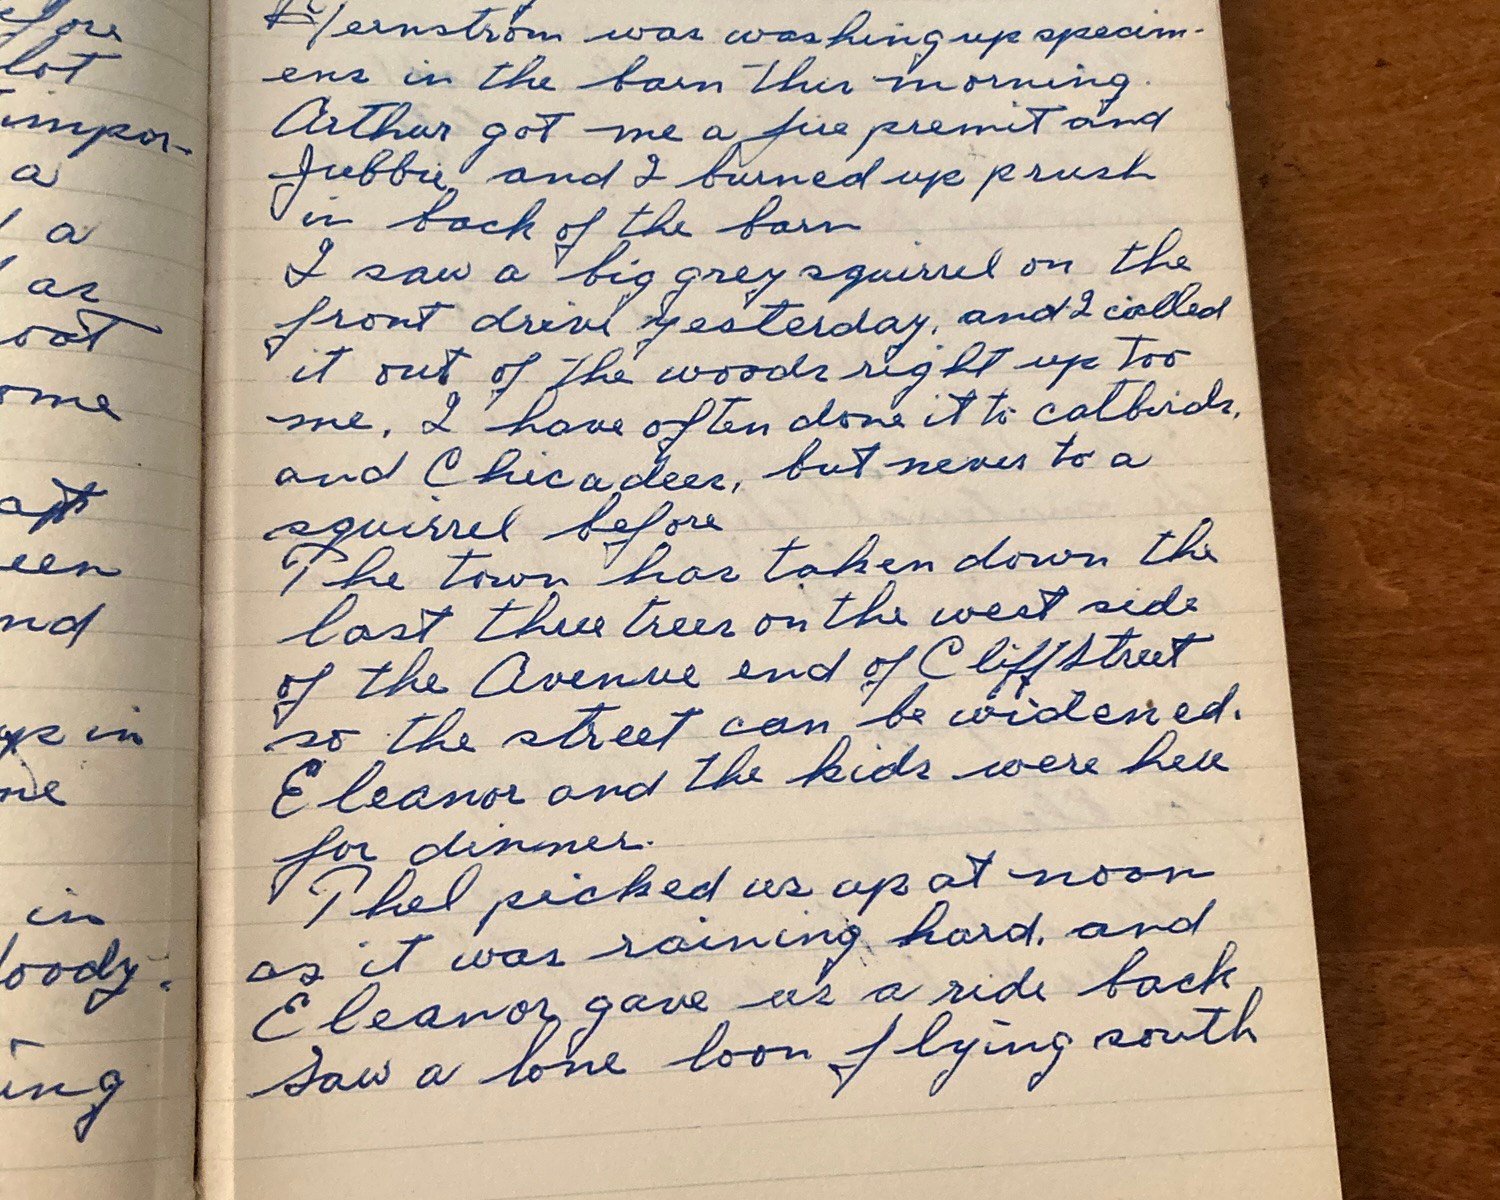 efore
lot
impor-
a
a
as
oat
ome
een
nd
in
me
in
loody.
ing
was washing up specim-
ens in the barn this morning.
Arthur got me a fire premit and
Jubbie and I burned up prush
in back of the barn
I saw a big grey squirrel on the
front drive yesterday, and I called
it out of the woods right up too
me, I have often done it to catbirds,
and Chicadees, but never to a
squirrel before
The town has taken down the
last three trees on the west side
of the Avenue end of Cliff Street
so the street can be widened.
Eleanor and the kids were here
for dinner.
Thel picked us up at noon
as it was raining hard, and
Eleanor gave us a ride back
Saw a lone loon flying south